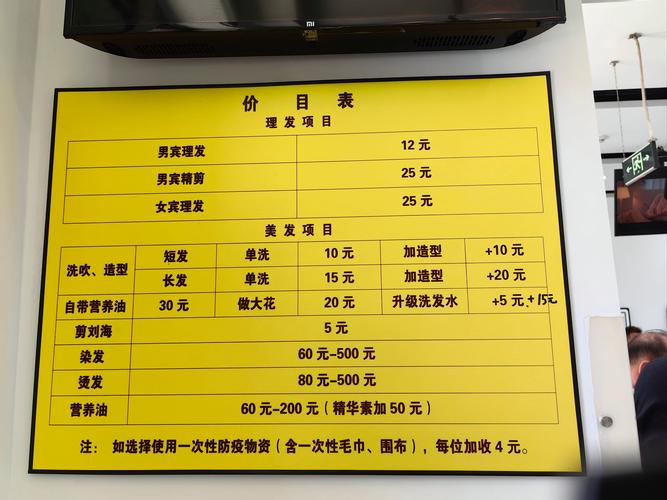 mi
价目表
理发项目
男宾理发 12元
男宾精剪 25元
女宾理发 25元
美发项目
洗吹、造型 短发 单洗 10元 加造型 +10元
长发 单洗 15元 加造型 +20元
自带营养油 30元 做大花 20元 升级洗发水 +5元.+15元
剪刘海 5元
染发 60元-500元
烫发 80元-500元
营养油 60元-200元（精华素加50元）
注：如选择使用一次性防疫物资（含一次性毛巾、围布），每位加收4元。